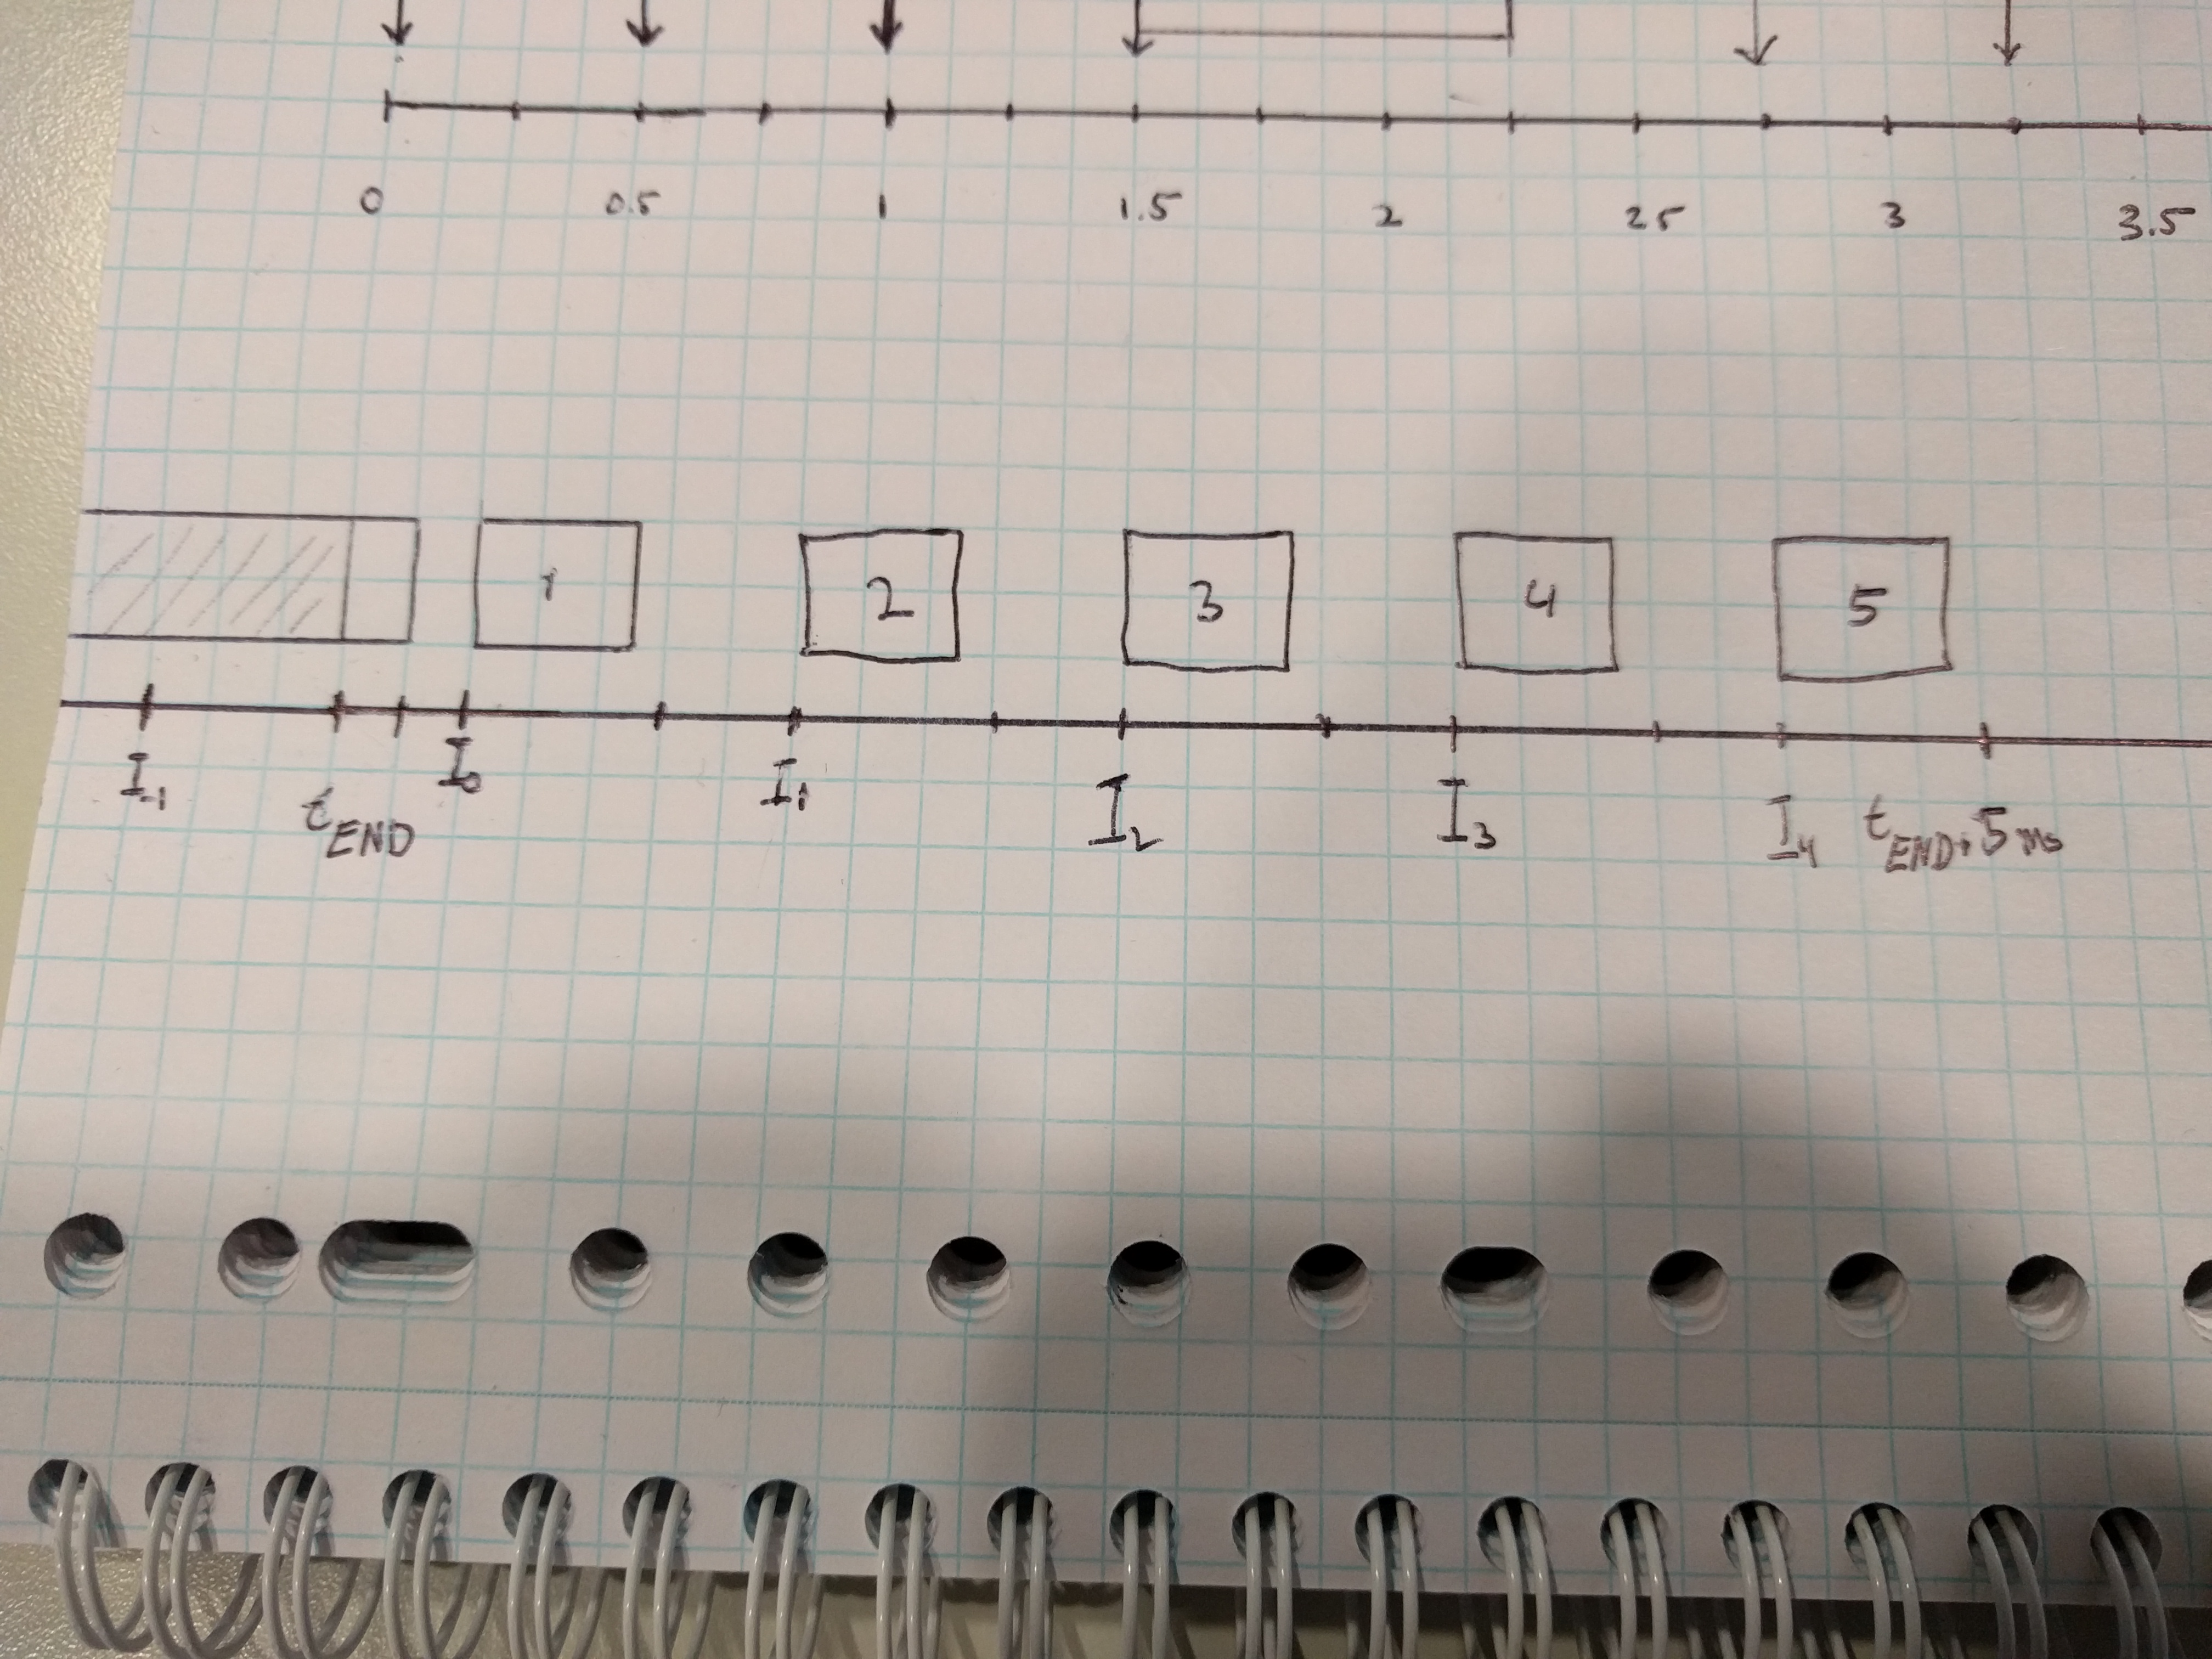 0 0.5 1 1.5 2 2.5 3 3.5
1 2 3 4 5
I-1 tEND I0 I1 I2 I3 I4 tEND+5ms